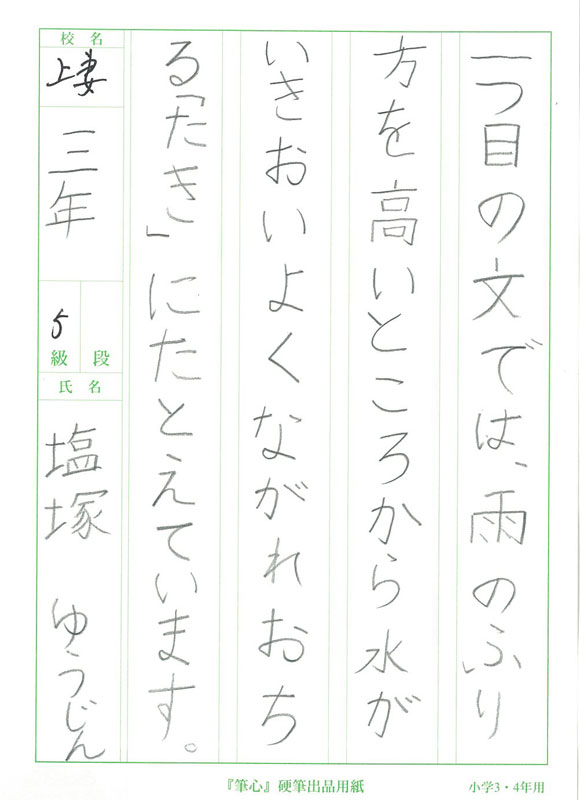 一つ目の文では、雨のふり
方を高いところから水が
いきおいよくながれおち
る「たき」にたとえています。
校名
上妻
三年
段
5級
氏名
塩塚 ゆうじん
『筆心』硬筆出品用紙
小学3・4年用